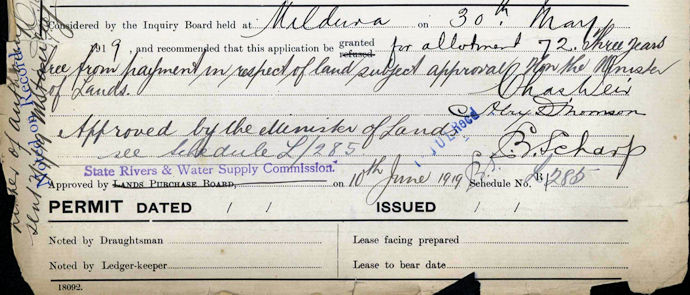 Considered by the Inquiry Board held at Mildura on 30th May
1919, and recommended that this application be granted refused for allotment 72. Three years
free from payment in respect of land subject approval Hon the Minister
of Lands.
Chas Weir
Alex Thomson
Approved by the Minister of Lands
E. Scharp
see schedule L/285
State Rivers & Water Supply Commission.
Approved by Lands Purchase Board, on 10th June 1919 Schedule No. L 285
PERMIT DATED / / ISSUED / /
Noted by Draughtsman
Lease facing prepared
Noted by Ledger-keeper
Lease to bear date
18092.
Noted on Records